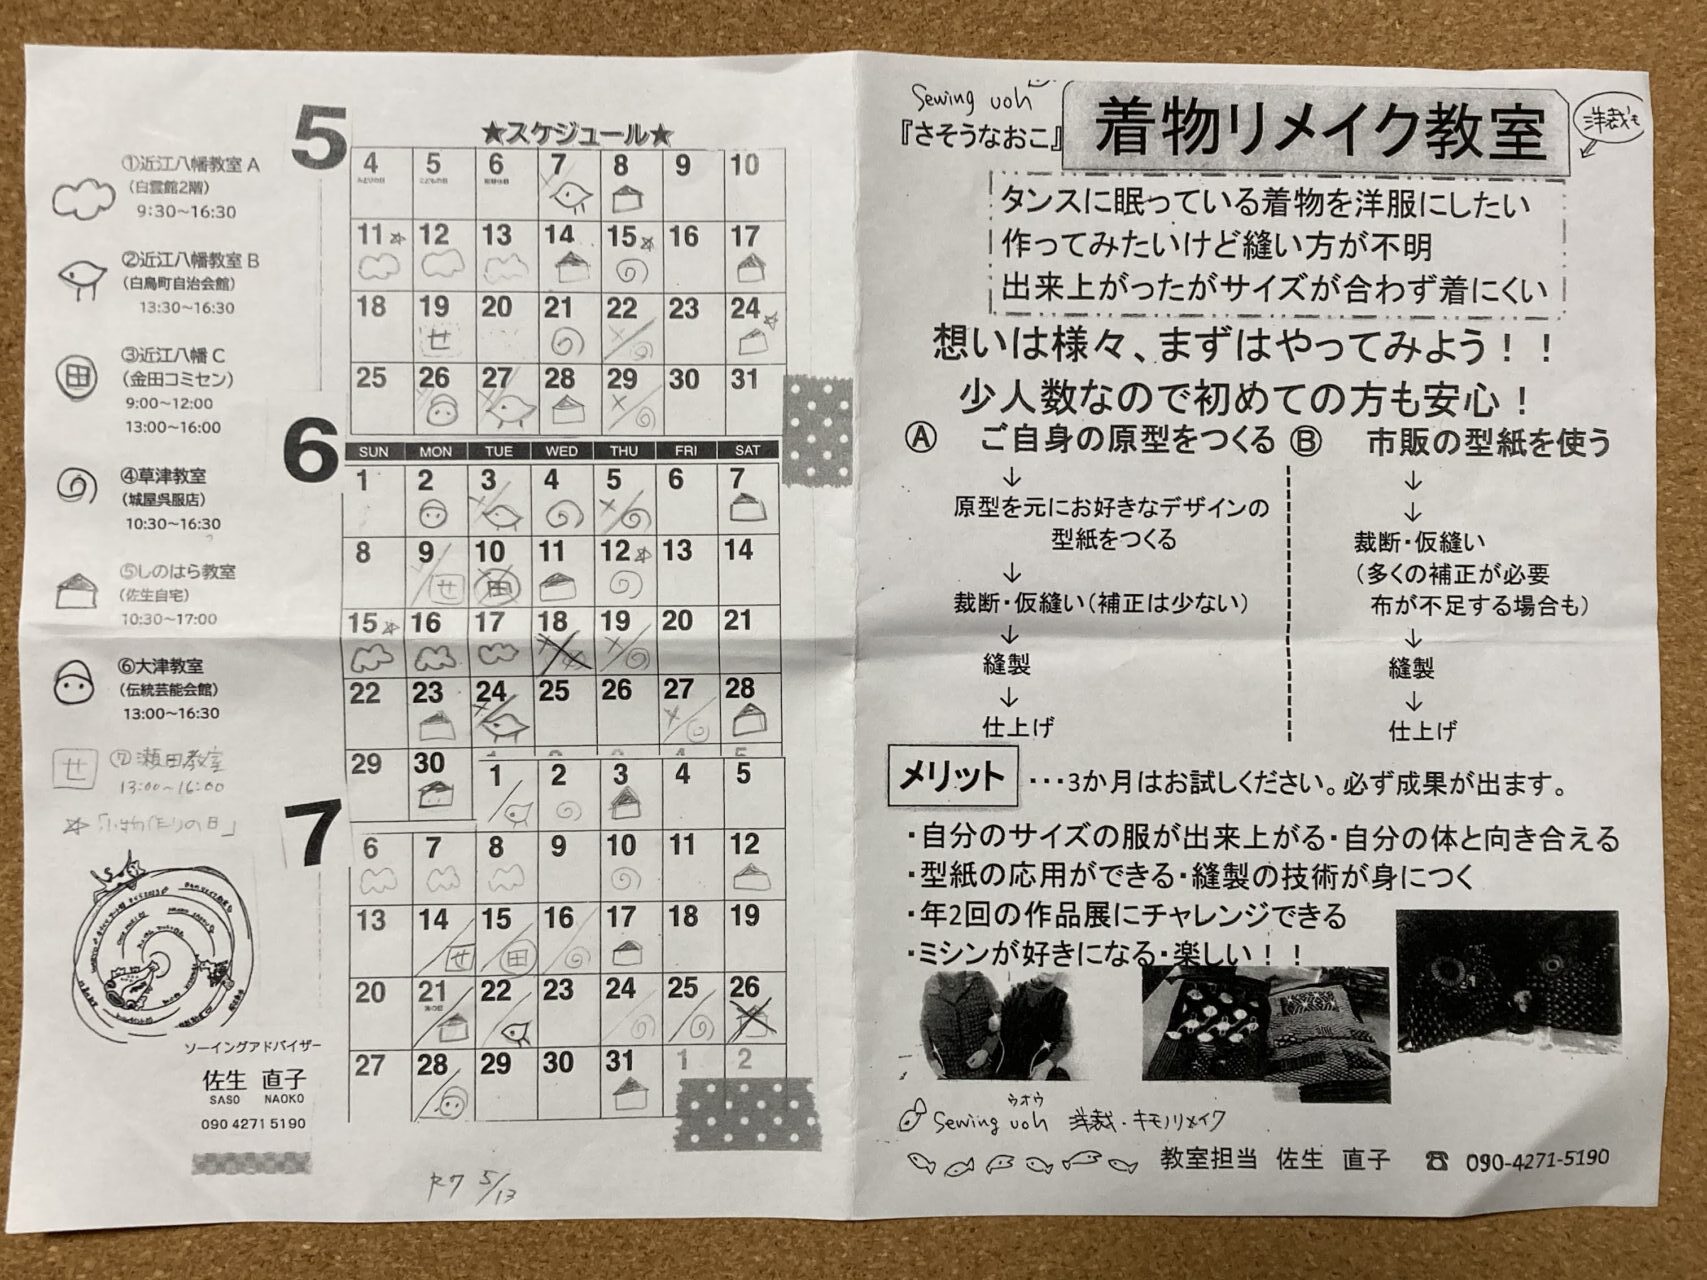 ★スケジュール★
5
①近江八幡教室 A
(白雲館2階)
9:30～16:30
②近江八幡教室 B
(白鳥町自治会館)
13:30～16:30
③近江八幡 C
(金田コミセン)
9:00～12:00
13:00～16:00
④草津教室
(城屋呉服店)
10:30～16:30
⑤しのはら教室
(佐生自宅)
10:30～17:00
⑥大津教室
(伝統芸能会館)
13:00～16:30
せ ⑦瀬田教室
13:00～16:00
☆「小物作りの日」
ソーイングアドバイザー
佐生 直子
SASO NAOKO
090 4271 5190
4 5 6 7 8 9 10
みどりの日 こどもの日 振替休日
11☆ 12 13 14 15☆ 16 17
18 19 20 21 22 23 24☆
せ
25 26 27 28 29 30 31
6
SUN MON TUE WED THU FRI SAT
1 2 3 4 5 6 7
8 9 10 11 12☆ 13 14
せ 田
15☆ 16 17 18 19 20 21
22 23 24 25 26 27 28
29 30
7
1 2 3 4 5
6 7 8 9 10 11 12
13 14 15 16 17 18 19
せ 田
20 21 22 23 24 25 26
海の日
27 28 29 30 31 1 2
R7 5/13
Sewing uoh
『さそうなおこ』
着物リメイク教室
洋裁も
タンスに眠っている着物を洋服にしたい
作ってみたいけど縫い方が不明
出来上がったがサイズが合わず着にくい
想いは様々、まずはやってみよう！！
少人数なので初めての方も安心！
Ⓐ ご自身の原型をつくる
↓
原型を元にお好きなデザインの
型紙をつくる
↓
裁断・仮縫い(補正は少ない)
↓
縫製
↓
仕上げ
Ⓑ 市販の型紙を使う
↓
↓
裁断・仮縫い
(多くの補正が必要
布が不足する場合も)
↓
縫製
↓
仕上げ
メリット ・・・3か月はお試しください。必ず成果が出ます。
・自分のサイズの服が出来上がる・自分の体と向き合える
・型紙の応用ができる・縫製の技術が身につく
・年2回の作品展にチャレンジできる
・ミシンが好きになる・楽しい！！
ウオウ
Sewing uoh 洋裁・キモノリメイク
教室担当 佐生 直子 ☎ 090-4271-5190